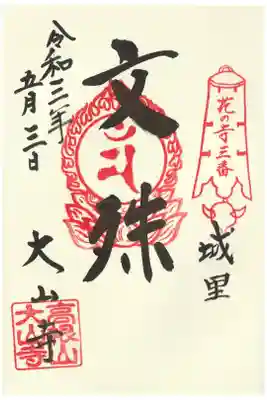 花の寺三番
城里
文殊
大山寺
高根山
大山寺
令和三年
五月三日